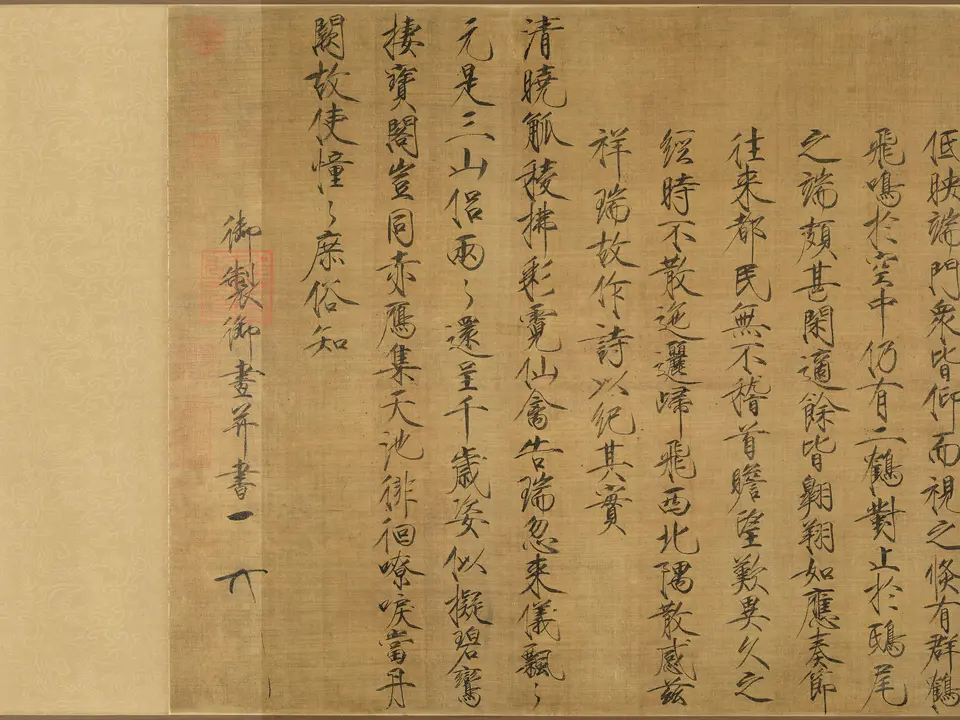 低映端門衆皆仰而視之倏有群鶴〻
飛鳴於空中仍有二鶴對止於鴟尾
之端頗甚閑適餘皆翱翔如應奏節
往来都民無不稽首瞻望歎異久之
經時不散迤邐歸飛西北隅散感茲
祥瑞故作詩以紀其實
清曉觚稜拂彩霓仙禽告瑞忽来儀飄〻
元是三山侣兩〻還呈千歲姿似擬碧鸞
棲寶閣豈同赤鴈集天池徘徊嘹唳當丹
闕故使憧〻庶俗知
御製御畫并書